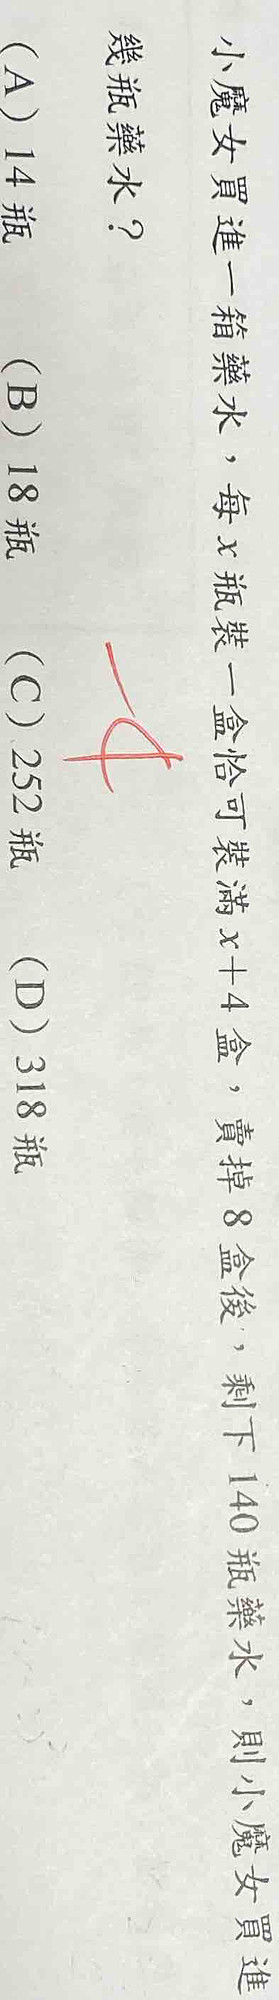 小魔女買進一箱藥水，每x瓶裝一盒恰可裝滿x+4盒，賣掉8盒後，剩下140瓶藥水，則小魔女買進
幾瓶藥水？
(A) 14瓶 (B) 18瓶 (C) 252瓶 (D) 318瓶
-4